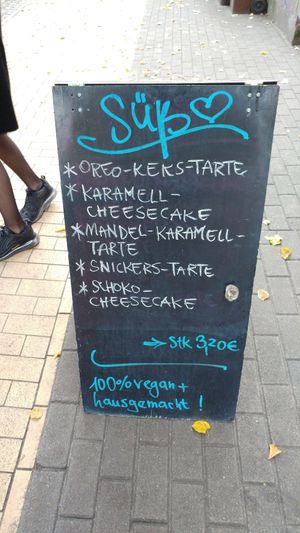 Süß ♡
* OREO-KEKS-TARTE
* KARAMELL-
CHEESECAKE
* MANDEL-KARAMELL-
TARTE
* SNICKERS-TARTE
* SCHOKO-
CHEESECAKE
→ Stk 3,20€
100% vegan +
hausgemacht !